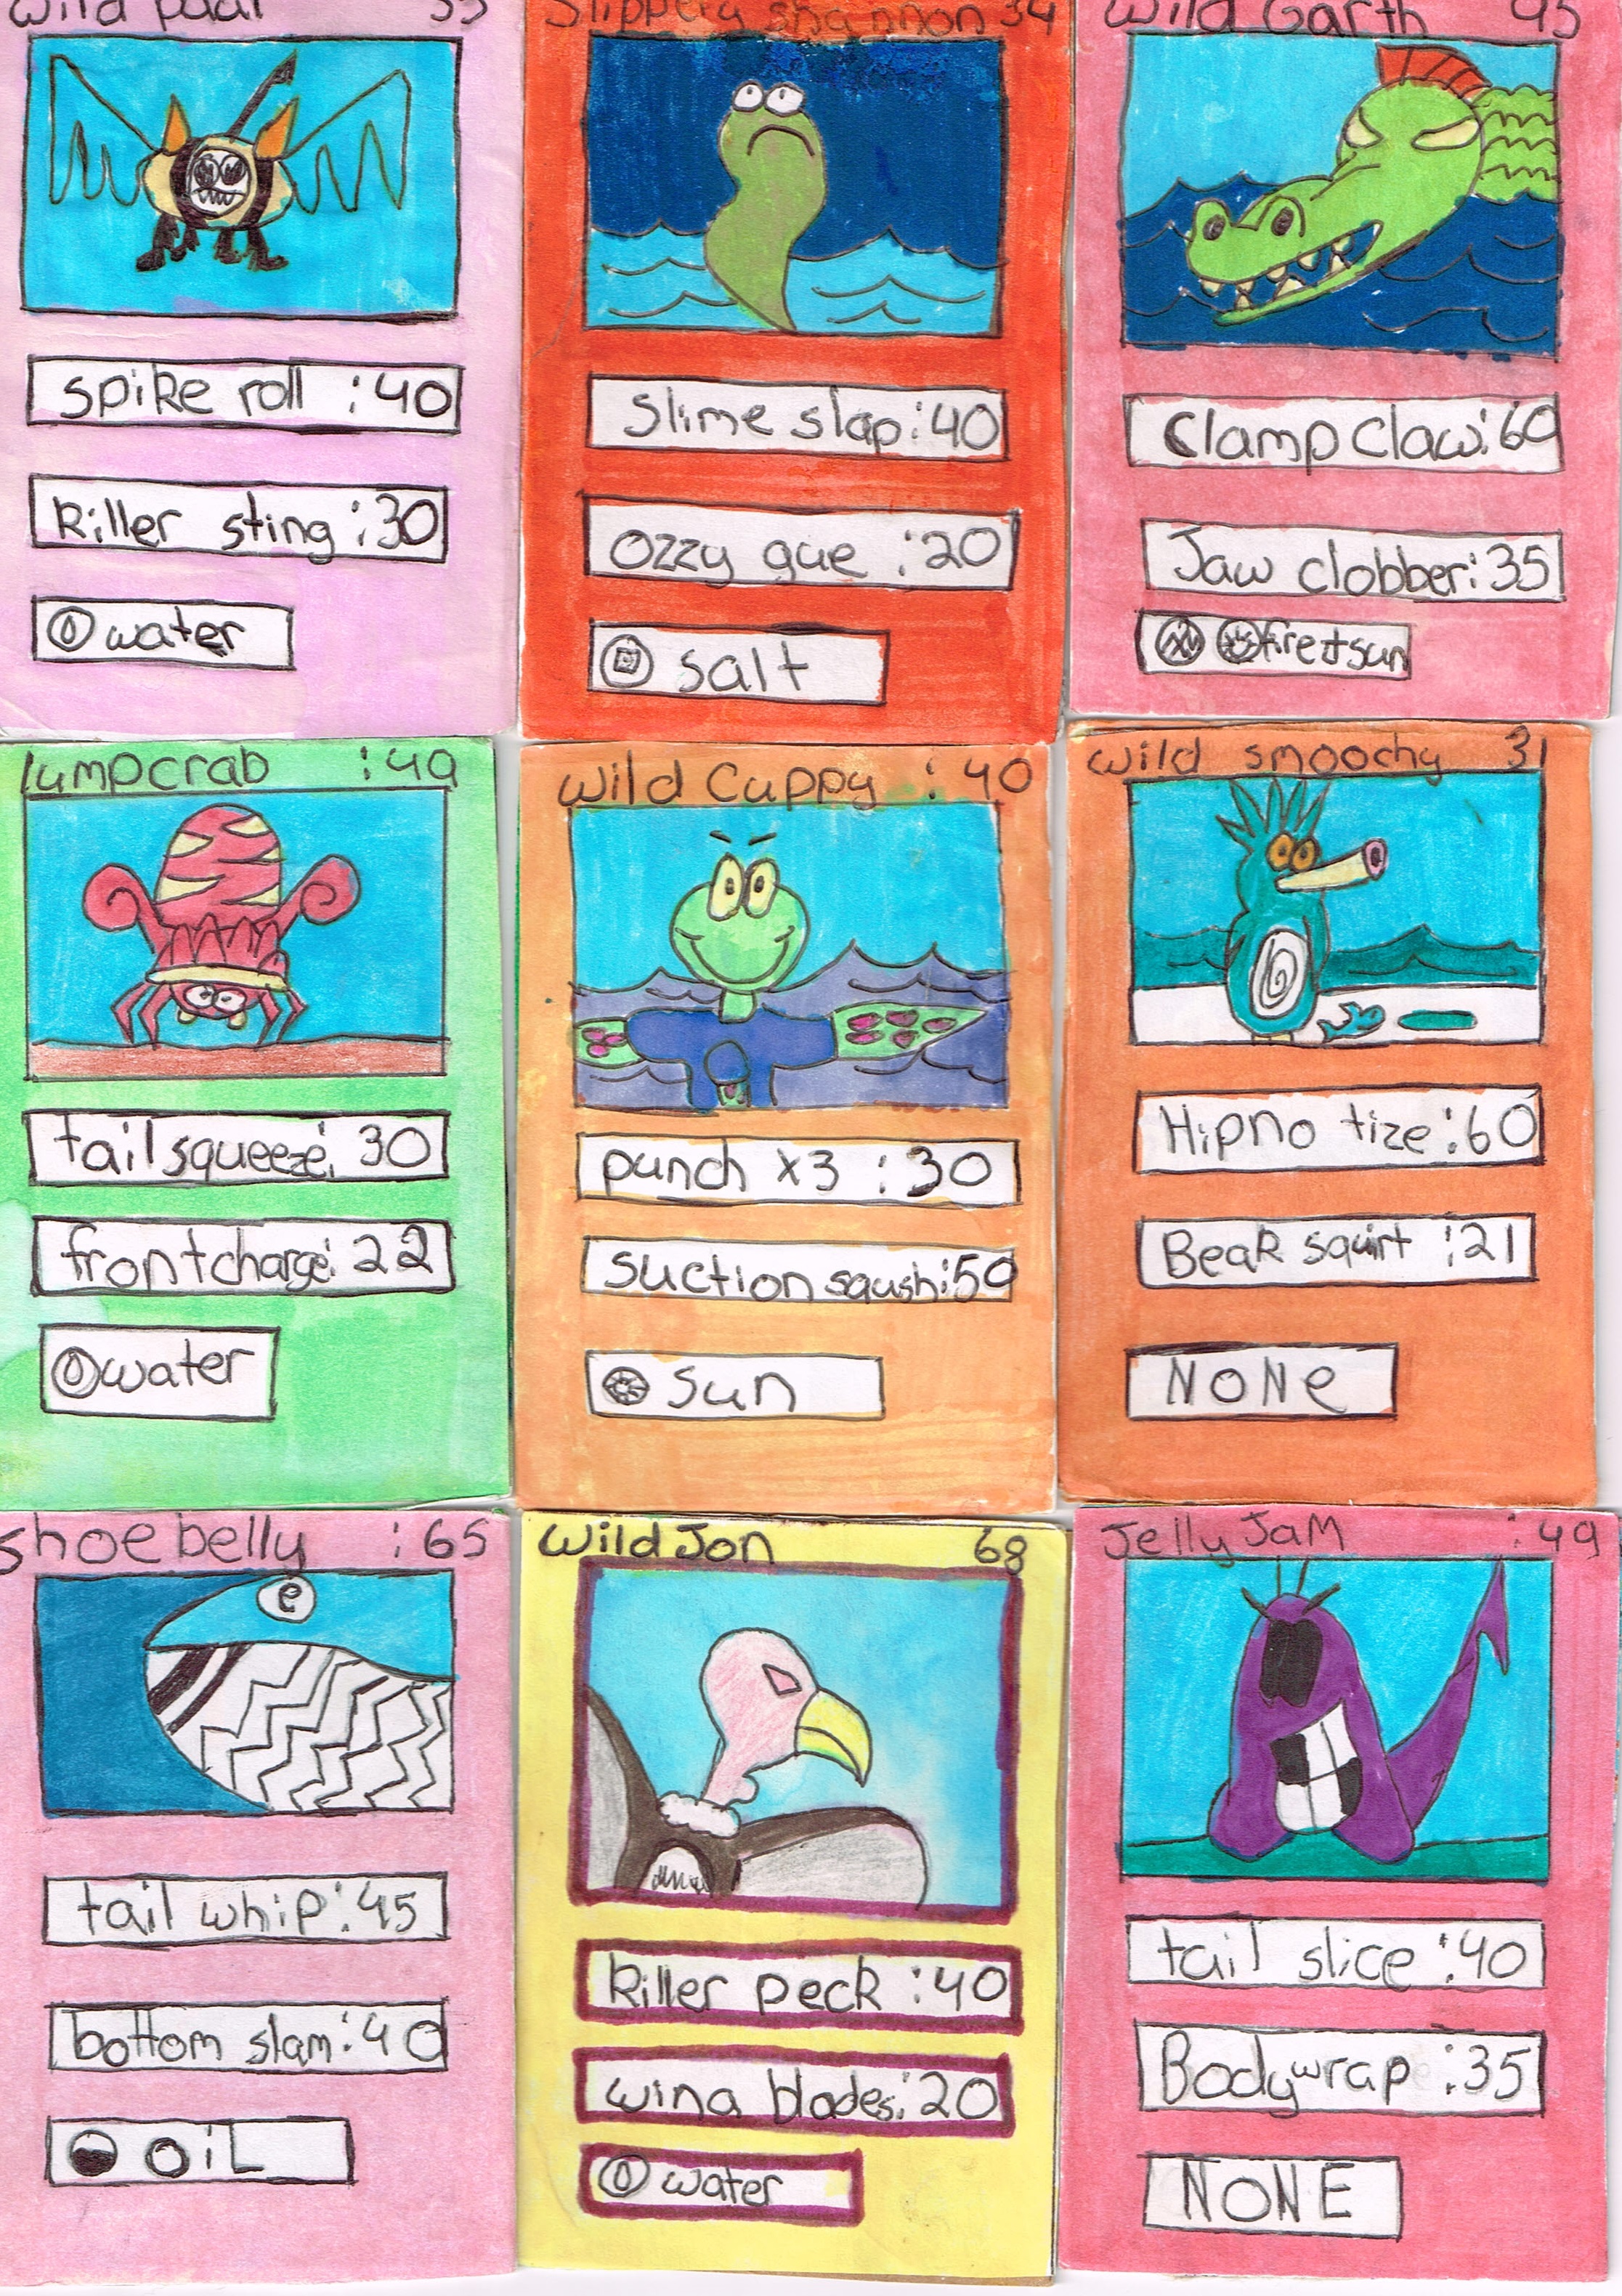 wild paul 55
spike roll :40
Killer sting :30
water
Slippery shannon 34
slime slap:40
ozzy gue :20
salt
Wild Garth 95
Clamp claw:60
Jaw clobber:35
fire+sun
lumpcrab :49
tail squeeze: 30
front charge: 22
water
wild Cuppy : 40
punch x3 : 30
suction sqush:50
sun
wild smoochy 31
Hipno tize:60
Beak squirt :21
NoNe
shoe belly :65
e
tail whip:45
bottom slam:40
oiL
Wild Jon 68
Killer peck :40
wing blades:20
water
Jelly JaM :49
tail slice :40
Bodywrap :35
NONE